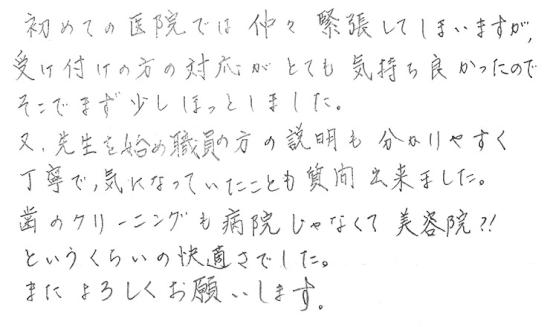 初めての医院では仲々緊張してしまいますが,
受け付けの方の対応がとても気持ち良かったので
そこでまず少しほっとしました。
又、先生を始め職員の方の説明も分かりやすく
丁寧で,気になっていたことも質問出来ました。
歯のクリーニングも病院じゃなくて美容院?!
というくらいの快適さでした。
またよろしくお願いします。